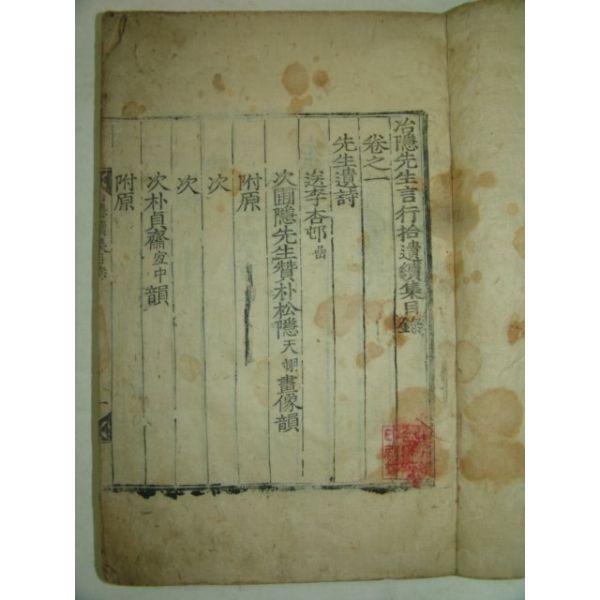 冶隱先生言行拾遺續集目錄
卷之一
先生遺詩
送李杏村
次圃隱先生贊朴松隱天翊畫像韻
附原
次
次
次朴貞齋宜中韻
附原